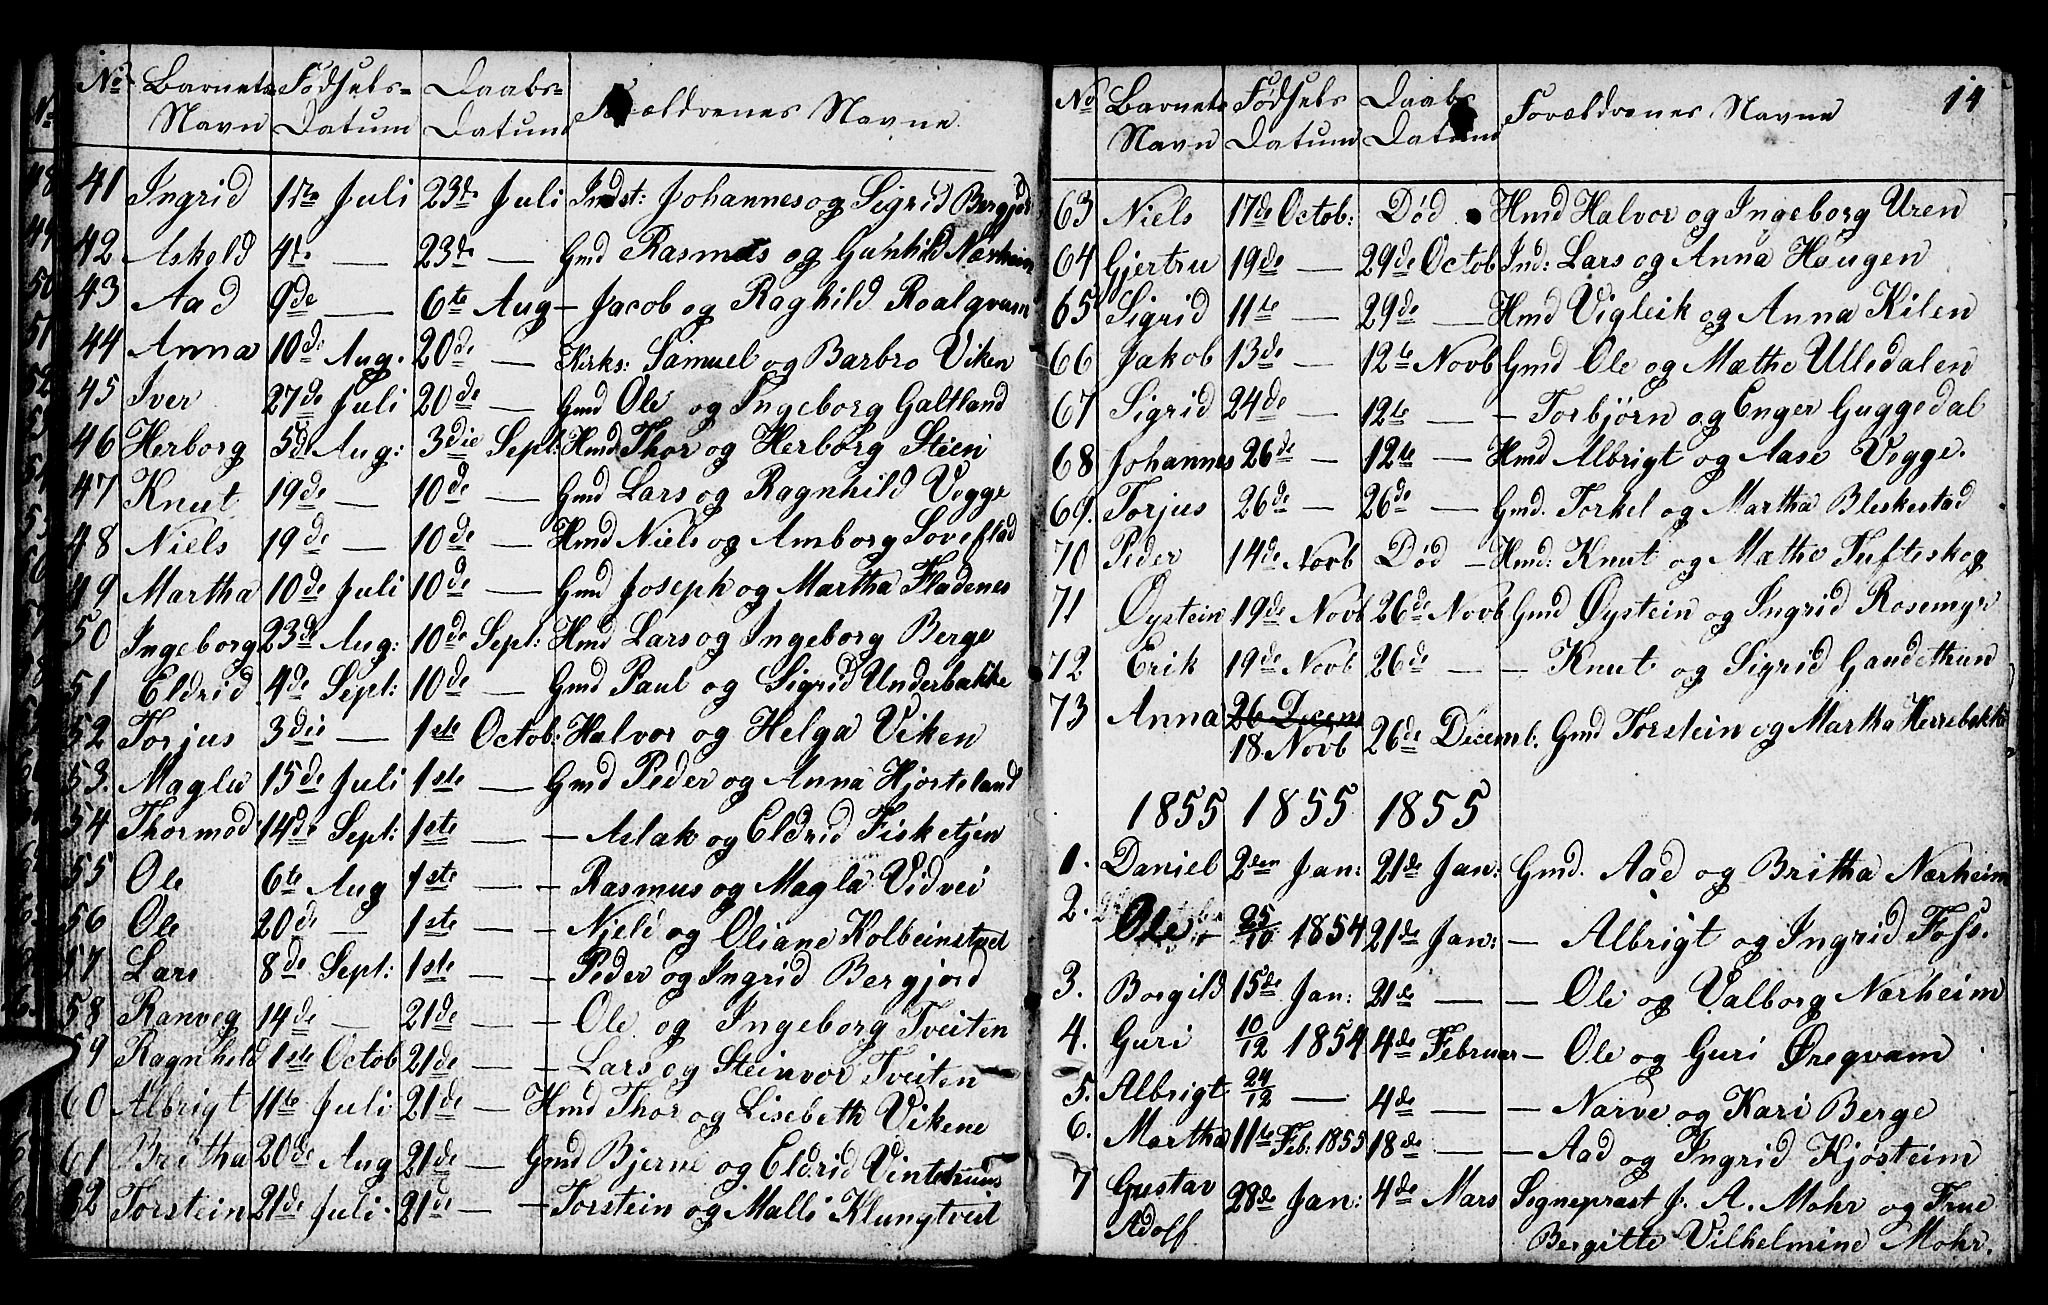 No Barnets Navn Fødsels- Datum Daabs- Datum Forældrenes Navne
41 Ingrid 1ste Juli 23de Juli Indst: Johannes og Sigrid Bergjord
42 Askeld 4de — 23de — Gmd Rasmus og Gunhild Nærheim
43 Aad 9de — 6te Aug — Jacob og Raghild Roalqvam
44 Anna 10de Aug. 20de — Kirks: Samuel og Barbro Viken
45 Iver 27de Juli 20de — Gmd Ole og Ingeborg Galtland
46 Herborg 5de Aug: 3die Sept: Hmd Thor og Herborg Steen
47 Knut 19de — 10de — Gmd Lars og Ragnhild Vegge
48 Niels 19de — 10de — Hmd Niels og Amborg Soveflad
49 Martha 10de Juli 10de — Gmd Joseph og Martha Fladenes
50 Ingeborg 23de Aug: 10de Sept: Hmd Lars og Ingeborg Berge
51 Eldrid 4de Sept: 10de — Gmd Paul og Sigrid Underbakke
52 Torjus 3die — 1ste Octob: Halvor og Helga Viken
53. Magla 15de Juli 1ste — Gmd Peder og Anna Hjorteland
54 Thormod 14de Sept: 1ste — — Aslak og Eldrid Fisketjen
55 Ole 6te Aug 1ste — — Rasmus og Magla Vidvei
56 Ole 20de — 1ste — — Njeld og Oliane Kolbeinstved
57 Lars 8de Sept: 1ste — — Peder og Ingrid Bergjord
58 Ranveg 14de — 21de — — Ole og Ingeborg Tveiten
59 Ragnheld 1ste Octob 21de — — Lars og Steinvor Tveiten
60 Albrigt 11te Juli 21de — Hmd Thor og Lisebeth Vikene
61 Britha 20de Aug 21de — Gmd Bjerne og Eldrid Vintetruns
62 Torstein 21de Juli 21de — — Torstein og Malli Klungtveit
14
No Barnets Navn Fødsels Datum Daabs Datum Forældrenes Navne
63 Niels 17de Octob: Død Hmd Halvor og Ingeborg Uren
64 Gjertru 19de — 29de Octob Ind: Lars og Anna Haugen
65 Sigrid 11te — 29de — Hmd Vigleik og Anna Kilen
66 Jakob 13de — 12te Novb Gmd Ole og Mæthe Ulledalen
67 Sigrid 24de — 12te — — Torbjørn og Enger Guggedal
68 Johannes 26de — 12te — Hmd Albrigt og Aase Vegge.
69. Torjus 26de — 26de — Gmd. Torkel og Martha Bleskestad
70 Peder 14de Novb Død — Hmd: Knut og Mæthe Tufteskog
71 Øystein 19de Novb 26de Novb Gmd Øystein og Ingrid Rosemyr
72 Erik 19de Novb 26de — — Knut og Sigrid Gandethun
73 Anna 26 Decem 18. Novb 26de Decemb. Gmd Torstein og Martha Herrebakke
1855 1855 1855
1. Daniel 2den Jan: 21de Jan: Gmd. Aad og Britha Nærheim
2. Ole 25/10 1854 21de Jan: — Albrigt og Ingrid Foss.
3. Borgild 15de Jan: 21de — — Ole og Valborg Nærheim
4. Guri 10/12 1854 4de Februar — Ole og Guri Øreqvam
5. Albrigt 24/12 — 4de — — Narve og Kari Berge
6. Martha 11te Feb: 1855 18de — — Aad og Ingrid Kjøsteim
7 Gustav Adolf 28de Jan: 4de Mars Sogneprest J. A. Mohr og Frue
Bergitte Vilhelmine Mohr.